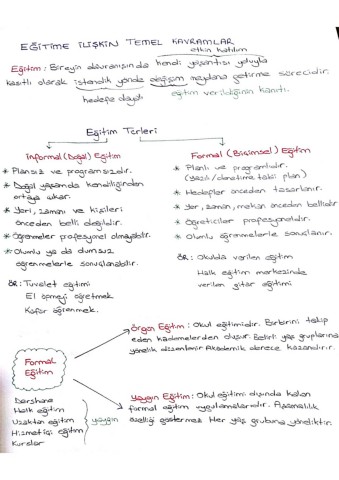 EĞİTİME İLİŞKİN TEMEL KAVRAMLAR
etkin katılım
Eğitim: Bireyin davranışında kendi yaşantısı yoluyla
kasıtlı olarak istendik yönde değişim meydana getirme sürecidir.
hedefe dayalı
eğitim verildiğinin kanıtı.
Eğitim Türleri
İnformal (Doğal) Eğitim
* Plansız ve programsızdır.
* Doğal yaşamda kendiliğinden
ortaya çıkar.
* Yeri, zamanı ve kişileri
önceden belli değildir.
* Öğretmenler profesyonel olmayabilir.
* Olumlu ya da olumsuz
öğrenmelerle sonuçlanabilir.
ÖR: Tuvalet eğitimi
El öpmeyi öğretmek
Küfür öğrenmek.
Formal (Biçimsel) Eğitim
* Planlı ve programlıdır.
(yazılı/denetime tabi plan)
* Hedefler önceden tasarlanır.
* Yer, zaman, mekan önceden bellidir
* Öğreticiler profesyoneldir.
* Olumlu öğrenmelerle sonuçlanır.
ÖR: Okulda verilen eğitim
Halk eğitim merkezinde
verilen gitar eğitimi
Formal
Eğitim
Örgün Eğitim: Okul eğitimidir. Birbirini takip
eden kademelerden oluşur. Belirli yaş gruplarına
yönelik düzenlenir. Akademik derece kazandırır.
Yaygın Eğitim: Okul eğitimi dışında kalan
formal eğitim uygulamalarıdır. Aşamalılık
özelliği göstermez. Her yaş grubuna yöneliktir.
Dershane
Halk eğitim
Uzaktan eğitim
Hizmetiçi eğitim
Kurslar
yaygın